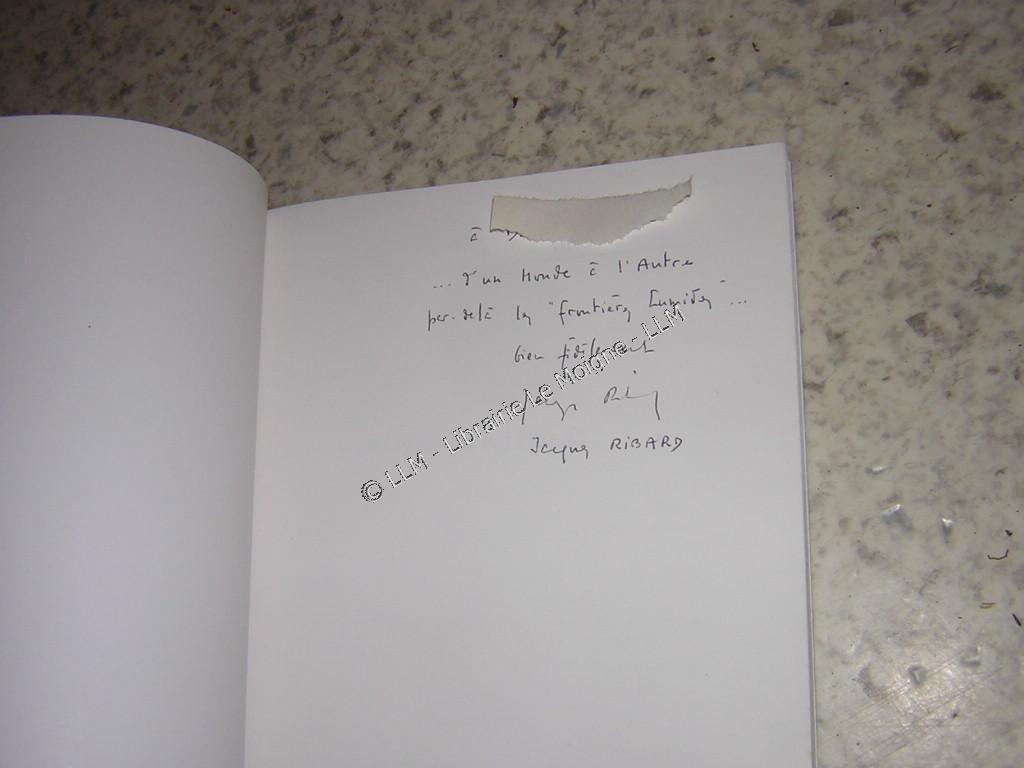 à
... d'un Monde à l'Autre
par-delà les "frontières humides" ...
bien fidèlement
Jacques RIBARD
© LLM - Librairie Le Moigne - LLM